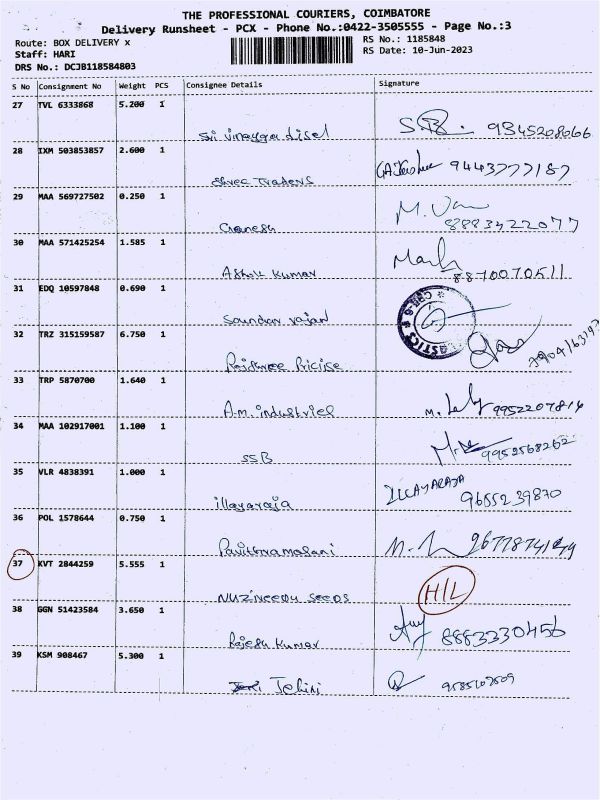 THE PROFESSIONAL COURIERS, COIMBATORE
Delivery Runsheet - PCX - Phone No.:0422-3505555 - Page No.:3
Route: BOX DELIVERY x
RS No.: 1185848
Staff: HARI
RS Date: 10-Jun-2023
DRS No.: DCJB118584803
S No Consignment No Weight PCS Consignee Details Signature
27 TVL 6333868 5.200 1
Sri vinayga disel 9345208666
28 IXM 503853857 2.600 1
Shree Traders 9443777187
29 MAA 569727502 0.250 1
Ganesh 8883422077
30 MAA 571425254 1.585 1
Ashok Kumar 8870070511
31 EDQ 10597848 0.690 1
Soundar rajan
32 TRZ 315159587 6.750 1
33 TRP 5870700 1.640 1
A.m. industriel 9952207814
34 MAA 102917001 1.100 1
SSB 9952568262
35 VLR 4838391 1.000 1
illayaraja ILLAYARAJA 9655239870
36 POL 1578644 0.750 1
Pavithramalani
37 KVT 2844259 5.555 1
NUZIVEEDU SEEDS H/L
38 GGN 51423584 3.650 1
Rajesh Kumar 8883330456
39 KSM 908467 5.300 1